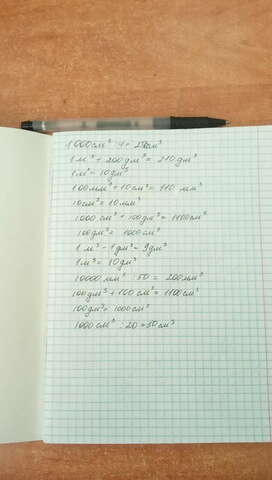 1000 см³ : 4 = 250см³
1 м³ + 200 дм³ = 210 дм³
1м³ = 10 дм³
100 мм³ + 10 см³ = 110 мм³
10см³ = 10 мм³
1000 см³ + 100дм³ = 1100см³
100дм³ = 1000см³
1 м³ - 1 дм³ = 9дм³
1 м³ = 10 дм³
10000 мм³ : 50 = 200мм³
100дм³ + 100 см³ = 1100см³
100дм³ = 1000см³
1000 см³ : 20 = 50 см³